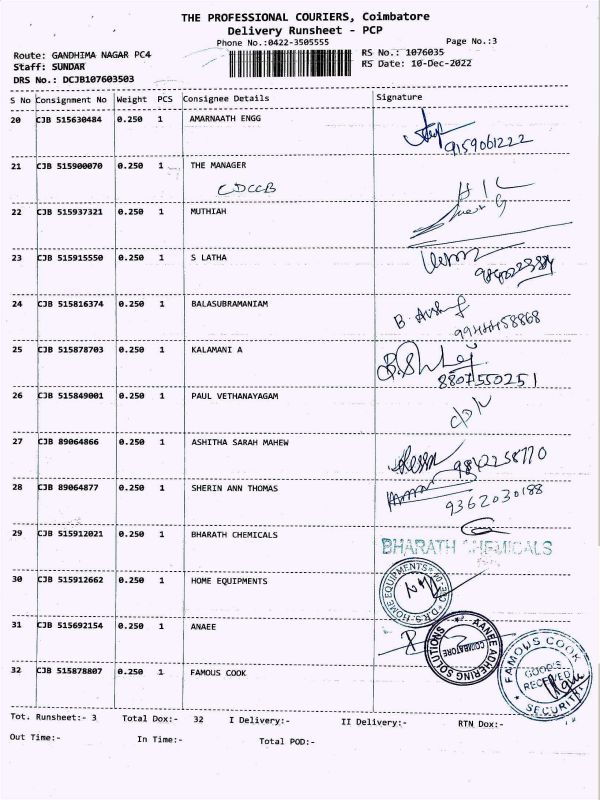 THE PROFESSIONAL COURIERS, Coimbatore
Delivery Runsheet - PCP
Phone No.:0422-3505555 Page No.:3
Route: GANDHIMA NAGAR PC4 RS No.: 1076035
Staff: SUNDAR RS Date: 10-Dec-2022
DRS No.: DCJB107603503
S No Consignment No Weight PCS Consignee Details Signature
20 CJB 515630484 0.250 1 AMARNAATH ENGG
9159061222
21 CJB 515900070 0.250 1 THE MANAGER
CDCCB
22 CJB 515937321 0.250 1 MUTHIAH
23 CJB 515915550 0.250 1 S LATHA
24 CJB 515816374 0.250 1 BALASUBRAMANIAM
9944458868
25 CJB 515878703 0.250 1 KALAMANI A
8807550251
26 CJB 515849001 0.250 1 PAUL VETHANAYAGAM
27 CJB 89064866 0.250 1 ASHITHA SARAH MAHEW
9842258770
28 CJB 89064877 0.250 1 SHERIN ANN THOMAS
9362030188
29 CJB 515912021 0.250 1 BHARATH CHEMICALS
BHARATH CHEMICALS
30 CJB 515912662 0.250 1 HOME EQUIPMENTS
HOME EQUIPMENTS
31 CJB 515692154 0.250 1 ANAEE
SOLUTIONS
COIMBATORE
32 CJB 515878807 0.250 1 FAMOUS COOK
FAMOUS COOK
GOODS
RECEIVED
SECURITY
Tot. Runsheet:- 3 Total Dox:- 32 I Delivery:- II Delivery:- RTN Dox:-
Out Time:- In Time:- Total POD:-